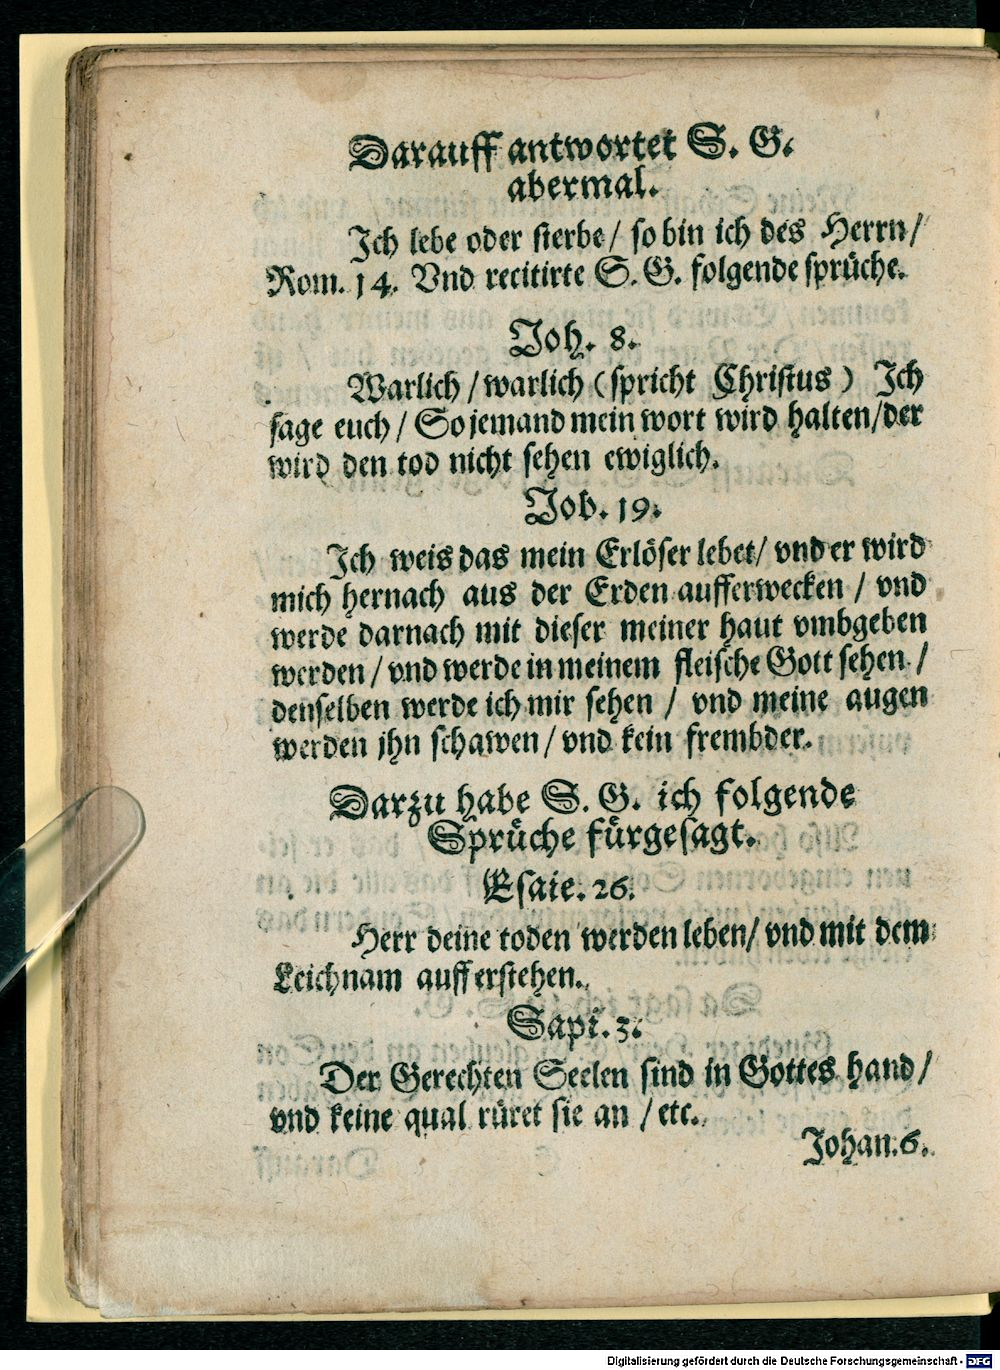 Darauff antwortet S. G.
abermal.
Ich lebe oder sterbe / so bin ich des Herrn /
Rom. 14. Vnd recitirte S. G. folgende sprüche.
Joh. 8.
Warlich / warlich (spricht Christus) Ich
sage euch / So jemand mein wort wird halten / der
wird den tod nicht sehen ewiglich.
Job. 19.
Ich weis das mein Erlöser lebet / vnd er wird
mich hernach aus der Erden aufferwecken / vnd
werde darnach mit dieser meiner haut vmbgeben
werden / vnd werde in meinem fleische Gott sehen /
denselben werde ich mir sehen / vnd meine augen
werden jhn schawen / vnd kein frembder.
Darzu habe S. G. ich folgende
Sprüche fürgesagt.
Esaie. 26.
Herr deine toden werden leben / vnd mit dem
Leichnam aufferstehen.
Sapi. 3.
Der Gerechten Seelen sind in Gottes hand /
vnd keine qual rüret sie an / etc.
Johan. 6.
Digitalisierung gefördert durch die Deutsche Forschungsgemeinschaft - DFG